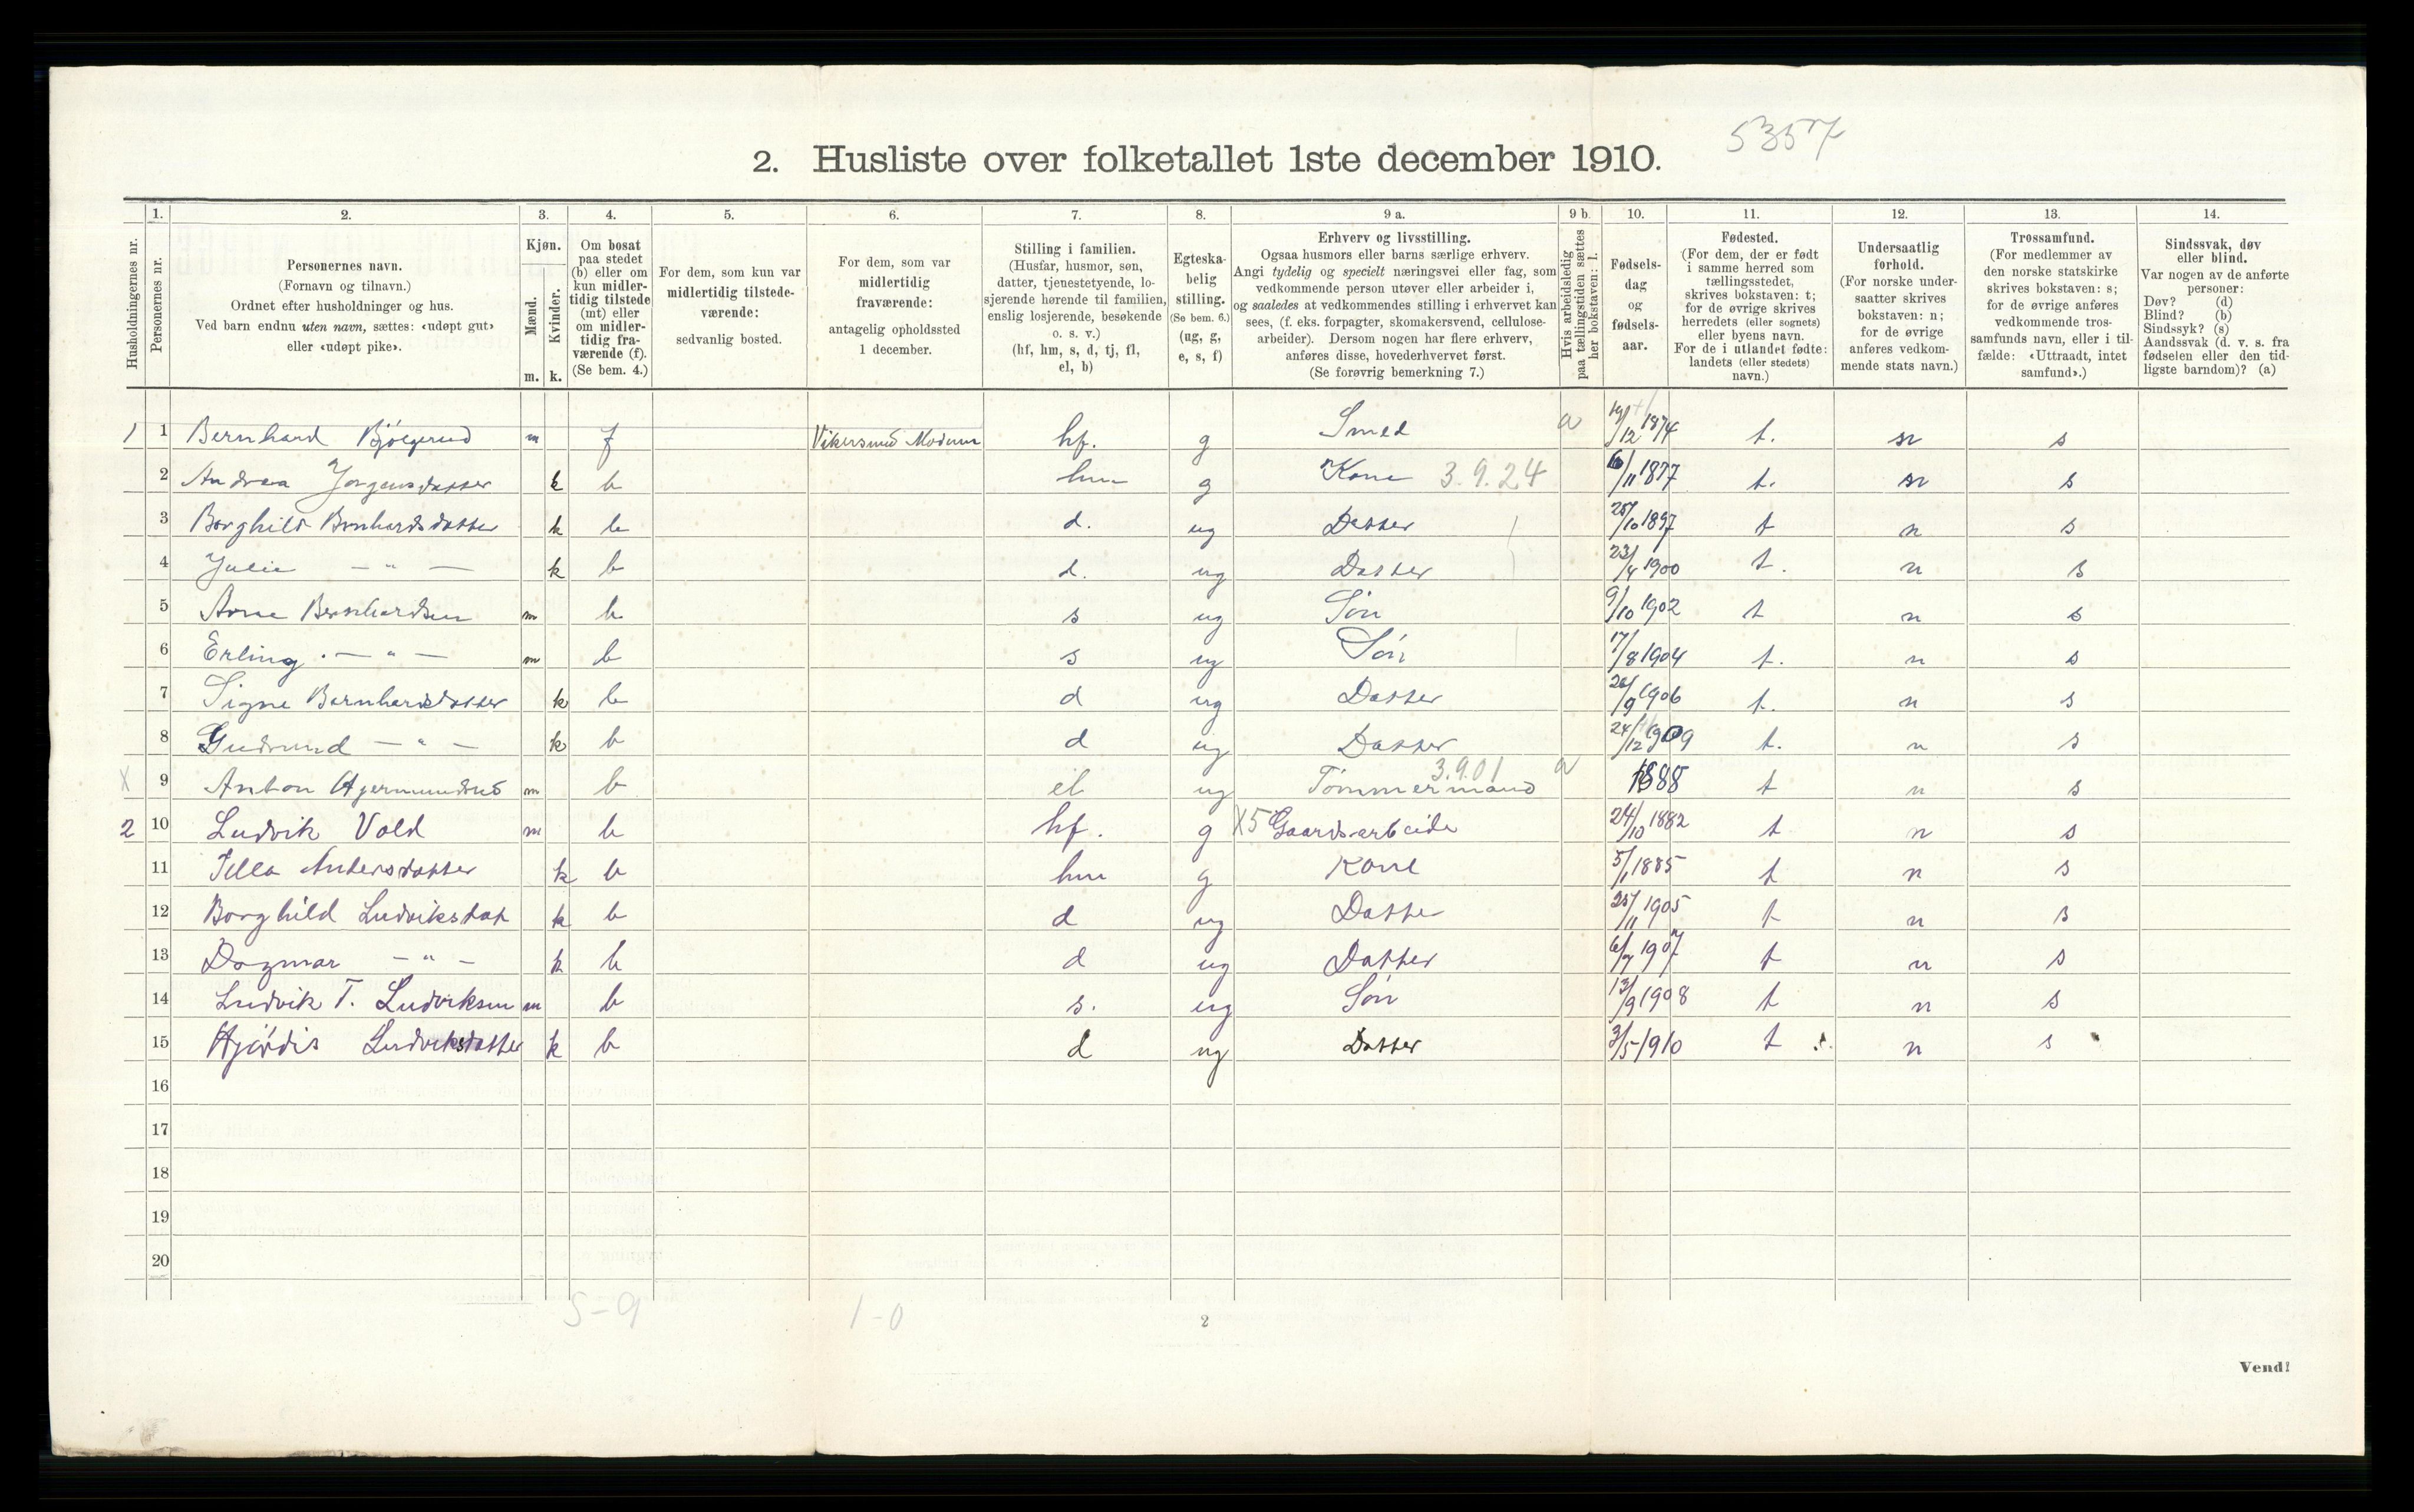 5357
2. Husliste over folketallet 1ste december 1910.
Husholdningernes nr.
1. Personernes nr.
2. Personernes navn.
(Fornavn og tilnavn.)
Ordnet efter husholdninger og hus.
Ved barn endnu uten navn, sættes: «udøpt gut»
eller «udøpt pike».
3. Kjøn.
Mænd. m.
Kvinder. k.
4. Om bosat
paa stedet
(b) eller om
kun midler-
tidig tilstede
(mt) eller
om midler-
tidig fra-
værende (f).
(Se bem. 4.)
5. For dem, som kun var
midlertidig tilstede-
værende:
sedvanlig bosted.
6. For dem, som var
midlertidig
fraværende:
antagelig opholdssted
1 december.
7. Stilling i familien.
(Husfar, husmor, søn,
datter, tjenestetyende, lo-
sjerende hørende til familien,
enslig losjerende, besøkende
o. s. v.)
(hf, hm, s, d, tj, fl,
el, b)
8. Egteska-
belig
stilling.
(Se bem. 6.)
(ug, g,
e, s, f)
9 a. Erhverv og livsstilling.
Ogsaa husmors eller barns særlige erhverv.
Angi tydelig og specielt næringsvei eller fag, som
vedkommende person utøver eller arbeider i,
og saaledes at vedkommendes stilling i erhvervet kan
sees, (f. eks. forpagter, skomakersvend, cellulose-
arbeider). Dersom nogen har flere erhverv,
anføres disse, hovederhvervet først.
(Se forøvrig bemerkning 7.)
9 b. Hvis arbeidsledig
paa tællingstiden sættes
her bokstaven: l.
10. Fødsels-
dag
og
fødsels-
aar.
11. Fødested.
(For dem, der er født
i samme herred som
tællingsstedet,
skrives bokstaven: t;
for de øvrige skrives
herredets (eller sognets)
eller byens navn.
For de i utlandet fødte:
landets (eller stedets)
navn.)
12. Undersaatlig
forhold.
(For norske under-
saatter skrives
bokstaven: n;
for de øvrige
anføres vedkom-
mende stats navn.)
13. Trossamfund.
(For medlemmer av
den norske statskirke
skrives bokstaven: s;
for de øvrige anføres
vedkommende tros-
samfunds navn, eller i til-
fælde: «Uttraadt, intet
samfund».)
14. Sindssvak, døv
eller blind.
Var nogen av de anførte
personer:
Døv? (d)
Blind? (b)
Sindssyk? (s)
Aandssvak (d. v. s. fra
fødselen eller den tid-
ligste barndom)? (a)
1 1 Bernhard m f Vikersund Modum hf. g Smed a 19/12 1874 t. n s
2 Andrea Jorgensdatter k b hm g Kone 3.9.24 6/11 1877 t. n s
3 Borghild Bernhardsdatter k b d. ug Datter 25/10 1897 t n s
4 Julie — " — k b d. ug Datter 23/4 1900 t. n s
5 Arne Bernhardsen m b s ug Søn 9/10 1902 t n s
6 Erling — " — m b s ug Søn 17/8 1904 t. n s
7 Signe Bernhardsdatter k b d ug Datter 26/9 1906 t. n s
8 Gudrund — " — k b d ug Datter 24/12 1909 t. n s
X 9 Anton m b el ug Tømmermand 3.9.01 a 1888 t n s
2 10 Ludvik Vold m b hf. g X5 Gaardsarbeide 24/10 1882 t n s
11 Andersdatter k b hm g Kone 5/1 1885 t n s
12 Borghild Ludviksdat k b d ug Datter 25/11 1905 t n s
13 Dagmar — " — k b d ug Datter 6/7 1907 t n s
14 Ludvik T. Ludviksen m b s. ug Søn 13/9 1908 t n s
15 Hjørdis Ludviksdatter k b d ug Datter 3/5 1910 t n s
16
17
18
19
20
5-9 1-0
2
Vend!